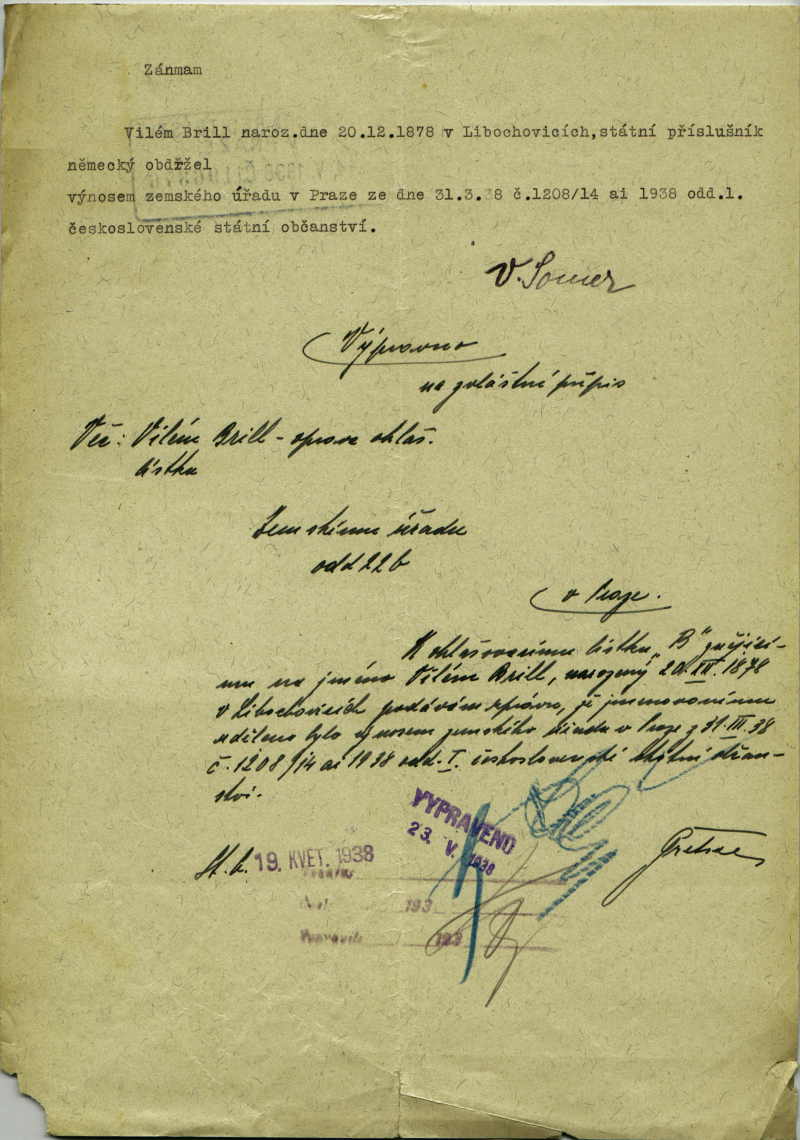 Zánmam
Vilém Brill naroz.dne 20.12.1878 v Libochovicích,státní příslušník
německý obdržel
výnosem zemského úřadu v Praze ze dne 31.3.38 č.1208/14 ai 1938 odd.1.
československé státní občanství.
V. Somer
Výpravno
na zvláštní přípis
Věc: Vilém Brill - oprava ohlaš.
lístku
Zemskému úřadu
odd 22 b
v Praze.
K ohlašovacímu lístku "B" znějící-
mu na jméno Vilém Brill, narozený 20.XII.1878
v Libochovicích podávám zprávu, že jmenovanému
uděleno bylo výnosem zemského úřadu v Praze z 31.III.38
č. 1208/14 ai 1938 odd. I. československé státní občan-
ství.
VYPRAVENO
23. V. 1938
19. KVĚT. 1938
193
Vypravil 193